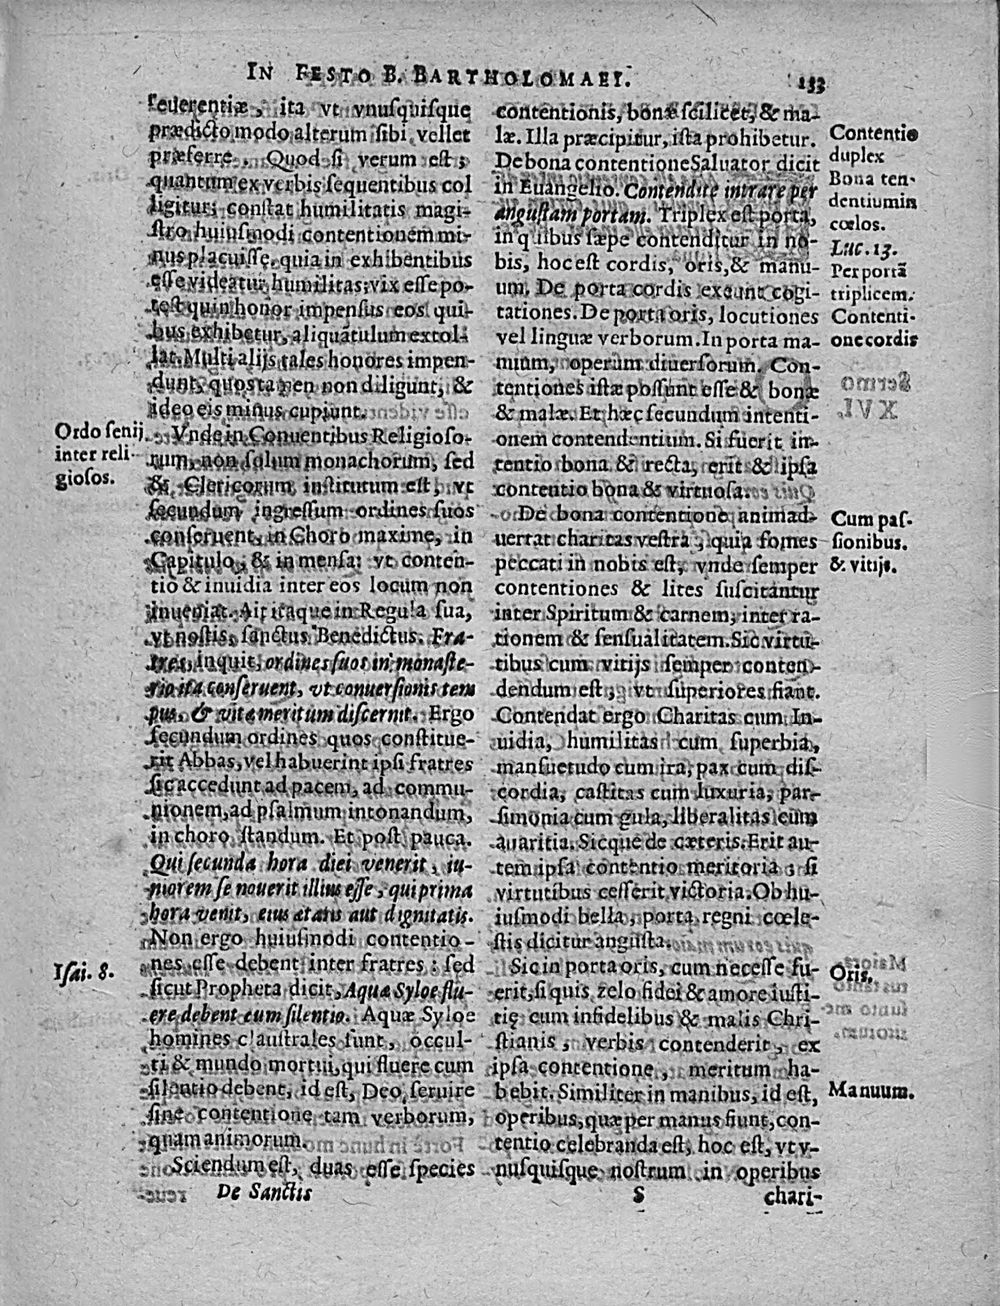 IN FESTO B. BARTHOLOMAEI. 133
reuerentiæ, ita vt vnusquisque
prædicto modo alterum sibi vellet
præferre. Quod si verum est;
quantum ex verbis sequentibus col
ligitur; constat humilitatis magi-
stro huiusmodi contentionem mi-
nus placuisse, quia in exhibentibus
esse videatur humilitas; vix esse po-
test quin honor impensus eos qui-
bus exhibetur, aliquātulum extol
lat. Multi alijs tales honores impen-
dunt, quos tamen non diligunt, &
ideo eis minus cupiunt.
Vnde in Conuentibus Religioso-
rum, non solum monachorum, sed
& Clericorum institutum est, vt
secundum ingressum ordines suos
conseruent, in Choro maxime, in
Capitulo, & in mensa: vt conten-
tio & inuidia inter eos locum non
inueniat. Ait itaque in Regula sua,
vt nostis, sanctus Benedictus. Fra-
tres, inquit, ordines suos in monaste-
rio ita conseruent, vt conuersionis tem
pus, & vitæ meritum discernit. Ergo
secundum ordines quos constitue-
rit Abbas, vel habuerint ipsi fratres
sic accedunt ad pacem, ad commu-
nionem, ad psalmum intonandum,
in choro standum. Et post pauca.
Qui secunda hora diei venerit, iu-
niorem se nouerit illius esse, qui prima
hora venit, eius ætatis aut dignitatis.
Non ergo huiusmodi contentio-
nes esse debent inter fratres; sed
sicut Propheta dicit, Aquæ Syloe flu-
ere debent cum silentio. Aquæ Syloe
homines claustrales sunt, occul-
ti & mundo mortui, qui fluere cum
silentio debent, id est, Deo seruire
sine contentione tam verborum,
quam animorum.
Sciendum est, duas esse species
De Sanctis
Ordo senij
inter reli-
giosos.
Isai. 8.
contentionis, bonæ scilicet, & ma-
læ. Illa præcipitur, ista prohibetur.
De bona contentione Saluator dicit
in Euangelio. Contendite intrare per
angustam portam. Triplex est porta,
in quibus sæpe contenditur in no-
bis, hoc est cordis, oris, & manu-
um. De porta cordis exeunt cogi-
tationes. De porta oris, locutiones
vel linguæ verborum. In porta ma-
nuum, operum diuersorum. Con-
tentiones istæ possunt esse & bonæ
& malæ. Et hæc secundum intenti-
onem contendentium. Si fuerit in-
tentio bona & recta, erit & ipsa
contentio bona & virtuosa.
De bona contentione animad-
uertat charitas vestra, quia fomes
peccati in nobis est, vnde semper
contentiones & lites suscitantur
inter Spiritum & carnem, inter ra-
tionem & sensualitatem. Sic virtu-
tibus cum vitijs semper conten-
dendum est, vt superiores fiant.
Contendat ergo Charitas cum In-
uidia, humilitas cum superbia,
mansuetudo cum ira, pax cum dis-
cordia, castitas cum luxuria, par-
simonia cum gula, liberalitas cum
auaritia. Sicque de cæteris. Erit au-
tem ipsa contentio meritoria, si
virtutibus cesserit victoria. Ob hu-
iusmodi bella, porta regni cœle-
stis dicitur angusta.
Sic in porta oris, cum necesse fu-
erit, si quis zelo fidei & amore iusti-
tię cum infidelibus & malis Chri-
stianis, verbis contenderit, ex
ipsa contentione, meritum ha-
bebit. Similiter in manibus, id est,
operibus, quæ per manus fiunt, con-
tentio celebranda est, hoc est, vt v-
nusquisque nostrum in operibus
S chari-
Contentio
duplex
Bona ten-
dentium in
cœlos.
Luc. 13.
Per portā
triplicem.
Contenti-
one cordis
Cum pas-
sionibus.
& vitijs.
Oris.
Manuum.